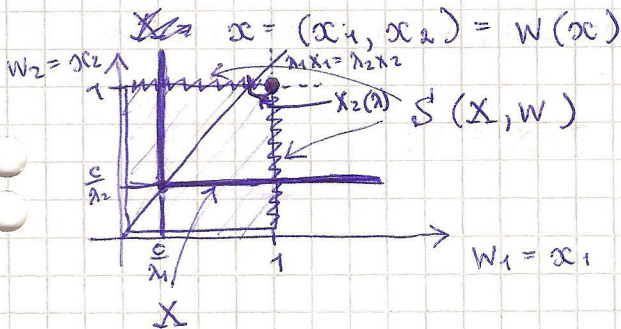 x = (x1, x2) = W(x)
W2 = x2
λ1x1 = λ2x2
1
X2(λ)
S(X, W)
c/λ2
1
c/λ1
1
W1 = x1
X